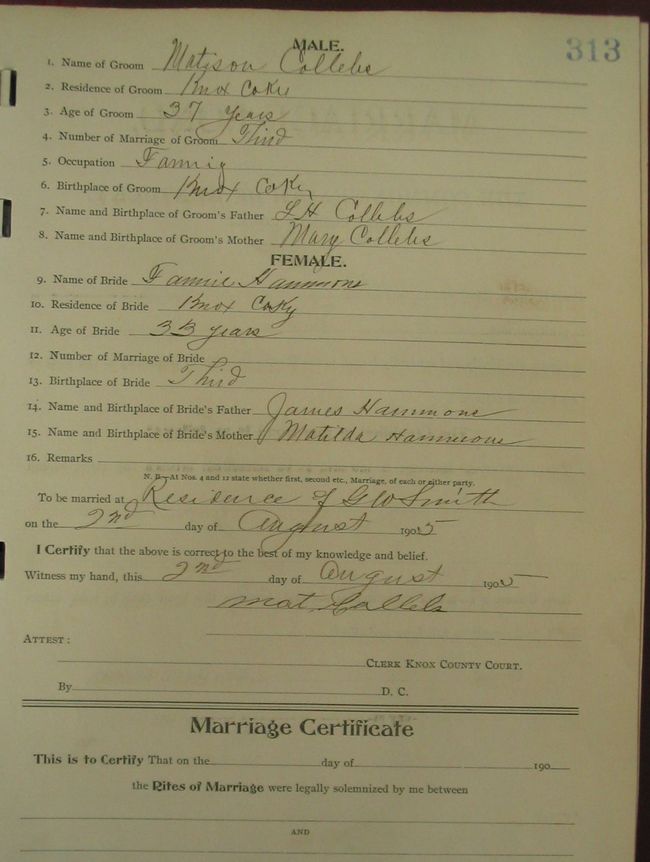 313
MALE.
1. Name of Groom Matison Collebs
2. Residence of Groom Knox Co Ky
3. Age of Groom 37 years
4. Number of Marriage of Groom Third
5. Occupation Farmig
6. Birthplace of Groom Knox Co Ky
7. Name and Birthplace of Groom's Father L H Collebs
8. Name and Birthplace of Groom's Mother Mary Collebs
FEMALE.
9. Name of Bride Fannie Hammons
10. Residence of Bride Knox Co Ky
11. Age of Bride 33 years
12. Number of Marriage of Bride
13. Birthplace of Bride Third
14. Name and Birthplace of Bride's Father James Hammons
15. Name and Birthplace of Bride's Mother Matilda Hammons
16. Remarks
N. B.—At Nos. 4 and 12 state whether first, second etc., Marriage, of each or either party.
To be married at Residence of G W Smith
on the 2nd day of August 1905
I Certify that the above is correct to the best of my knowledge and belief.
Witness my hand, this 2nd day of August 1905
Mat Collebs
ATTEST:
CLERK KNOX COUNTY COURT.
By D. C.
Marriage Certificate
This is to Certify That on the day of 190
the Rites of Marriage were legally solemnized by me between
AND